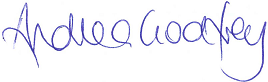 Andrea Godfrey